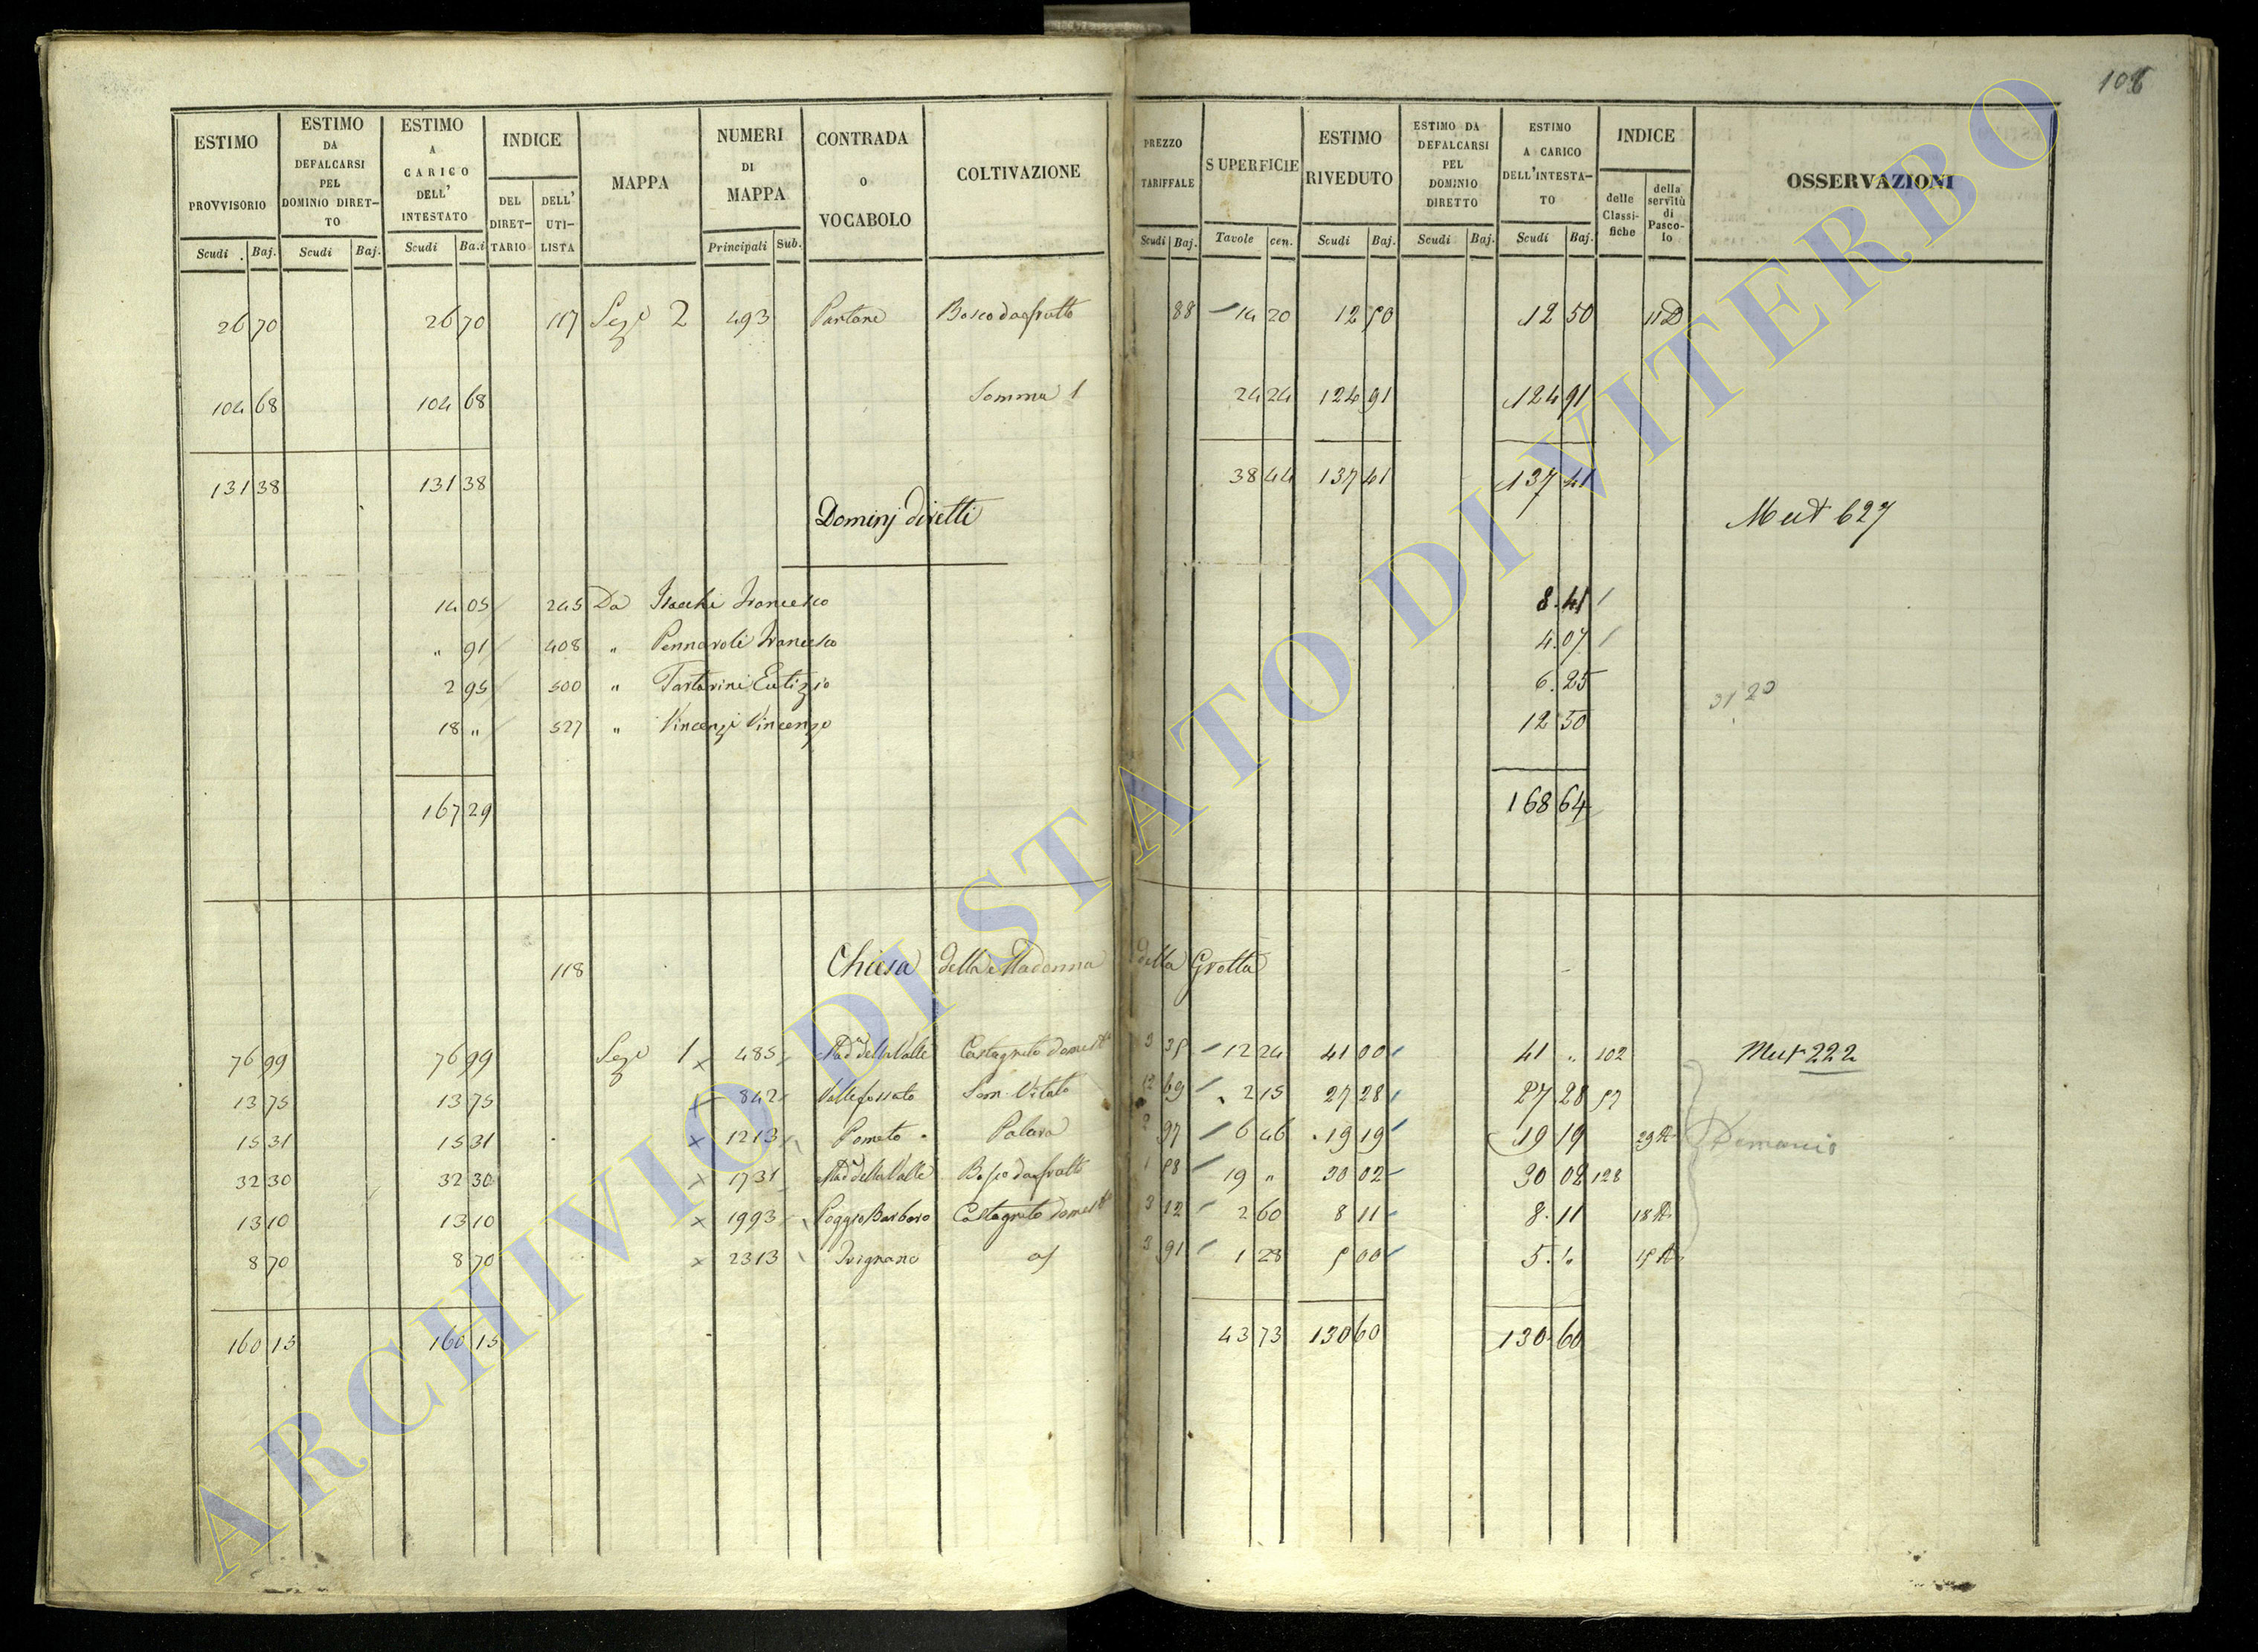 106
ESTIMO PROVVISORIO Scudi Baj.
ESTIMO DA DEFALCARSI PEL DOMINIO DIRET-TO Scudi Baj.
ESTIMO A CARICO DELL' INTESTATO Scudi Ba.i
INDICE DEL DIRET-TARIO DELL' UTI-LISTA
MAPPA
NUMERI DI MAPPA Principali Sub.
CONTRADA O VOCABOLO
COLTIVAZIONE
PREZZO TARIFFALE Scudi Baj.
SUPERFICIE Tavole cen.
ESTIMO RIVEDUTO Scudi Baj.
ESTIMO DA DEFALCARSI PEL DOMINIO DIRETTO Scudi Baj.
ESTIMO A CARICO DELL'INTESTA-TO Scudi Baj.
INDICE delle Classi-fiche della servitù di Pasco-lo
OSSERVAZIONI
26 70 26 70 117 Sez.e 2 493 Bosco da frutto 88 14 20 12 50 12 50 11 D
104 68 104 68 Somma 1 24 24 124 91 124 91
131 38 131 38 38 44 137 41 137 41
Dominj diretti Mut 627
14 05 245 Da Francesco 8. 41
" 91 408 " Pennaroli Francesco 4. 07
2 95 500 " Tartarini Eutizio 6. 25 31 20
18 " 527 " Vincenzi Vincenzo 12 50
167 29 168 64
118 Chiesa della Madonna della Grotta
76 99 76 99 Sez.e 1 x 485 Mad.a della Valle Castagneto domest.o 3 35 12 24 41 00 41 " 102 Mut 222
13 75 13 75 x 842 Valle fossata Sem. Vitato 12 69 2 15 27 28 27. 28 57
15 31 15 31 x 1213 Pometo 2 97 6 46 19 19 19 19 29 Demanio
32 30 32 30 x 1731 Mad.a della Valle Bosco da frutto 1 58 19 " 30 02 30 02 128
13 10 13 10 x 1993 Poggio Barbaro Castagneto domest.o 3 12 2 60 8 11 8. 11 18
8 70 8 70 x 2313 Ivignano 3 91 1 28 5 00 5. " 15
160 15 160 15 43 73 130 60 130 60
ARCHIVIO DI STATO DI VITERBO